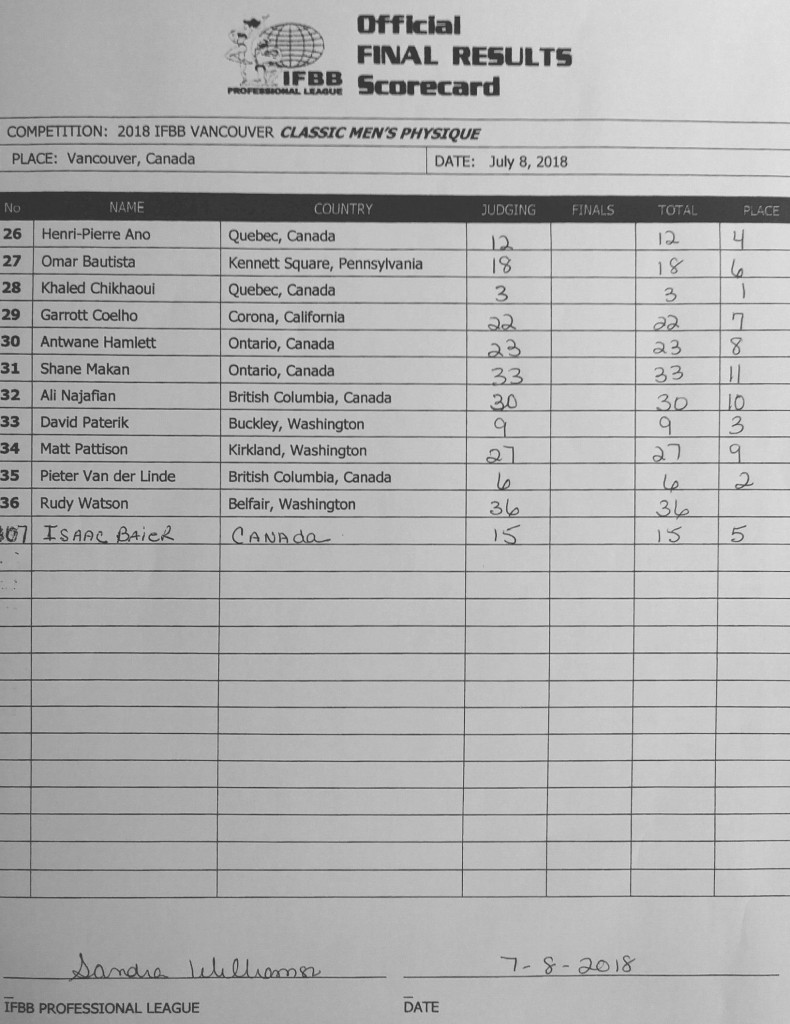 Official
FINAL RESULTS
Scorecard
IFBB
PROFESSIONAL LEAGUE
COMPETITION: 2018 IFBB VANCOUVER CLASSIC MEN'S PHYSIQUE
PLACE: Vancouver, Canada DATE: July 8, 2018
No NAME COUNTRY JUDGING FINALS TOTAL PLACE
26 Henri-Pierre Ano Quebec, Canada 12 12 4
27 Omar Bautista Kennett Square, Pennsylvania 18 18 6
28 Khaled Chikhaoui Quebec, Canada 3 3 1
29 Garrott Coelho Corona, California 22 22 7
30 Antwane Hamlett Ontario, Canada 23 23 8
31 Shane Makan Ontario, Canada 33 33 11
32 Ali Najafian British Columbia, Canada 30 30 10
33 David Paterik Buckley, Washington 9 9 3
34 Matt Pattison Kirkland, Washington 27 27 9
35 Pieter Van der Linde British Columbia, Canada 6 6 2
36 Rudy Watson Belfair, Washington 36 36
307 ISAAC BAIER CANADA 15 15 5
Sandra Williamson 7-8-2018
IFBB PROFESSIONAL LEAGUE DATE